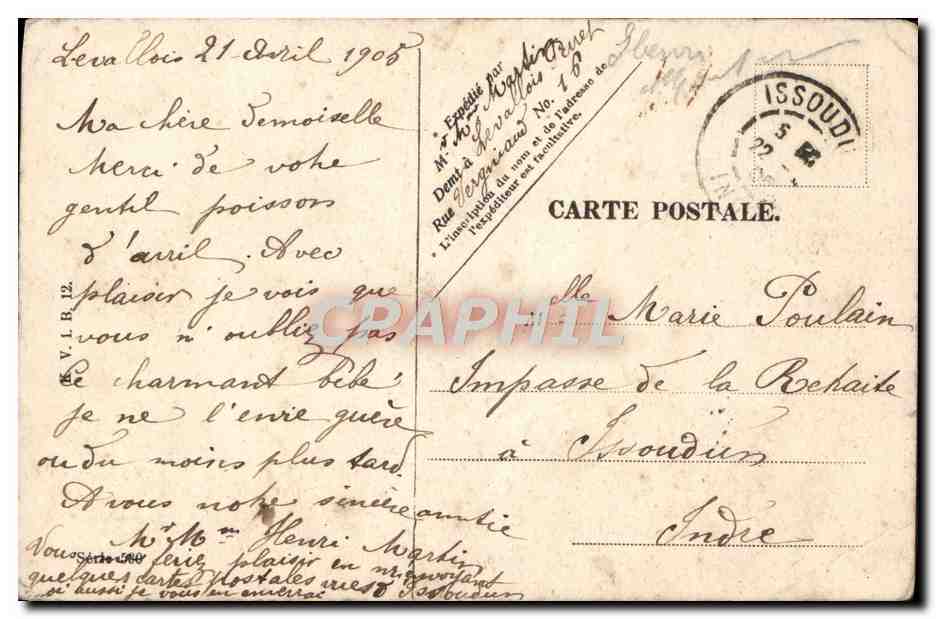 Levallois 21 Avril 1905
Ma chère demoiselle
Merci de votre
gentil poisson
d'avril. Avec
plaisir je vois que
vous n'oubliez pas
le charmant bébé
je ne l'envie guère
ou du moins plus tard
A vous notre sincère amitié
Mr Mme Henri Martin
Vous ferie plaisir en m'envoyant
quelques cartes Postales vues d'Issoudun
où aussi je vous en enverrai
Série 500
V. I. B. 12.
* Expédié par
M. r Mme Martin
Demt à Levallois Perret
Rue Vergniaud No. 16
* L'inscription du nom et de l'adresse de
l'expéditeur est facultative.
Henri
Martin
ISSOUDU
5
22
IN
CARTE POSTALE.
Melle Marie Poulain
Impasse de la Rchaite
à Issoudun
Indre
CPAPHIL